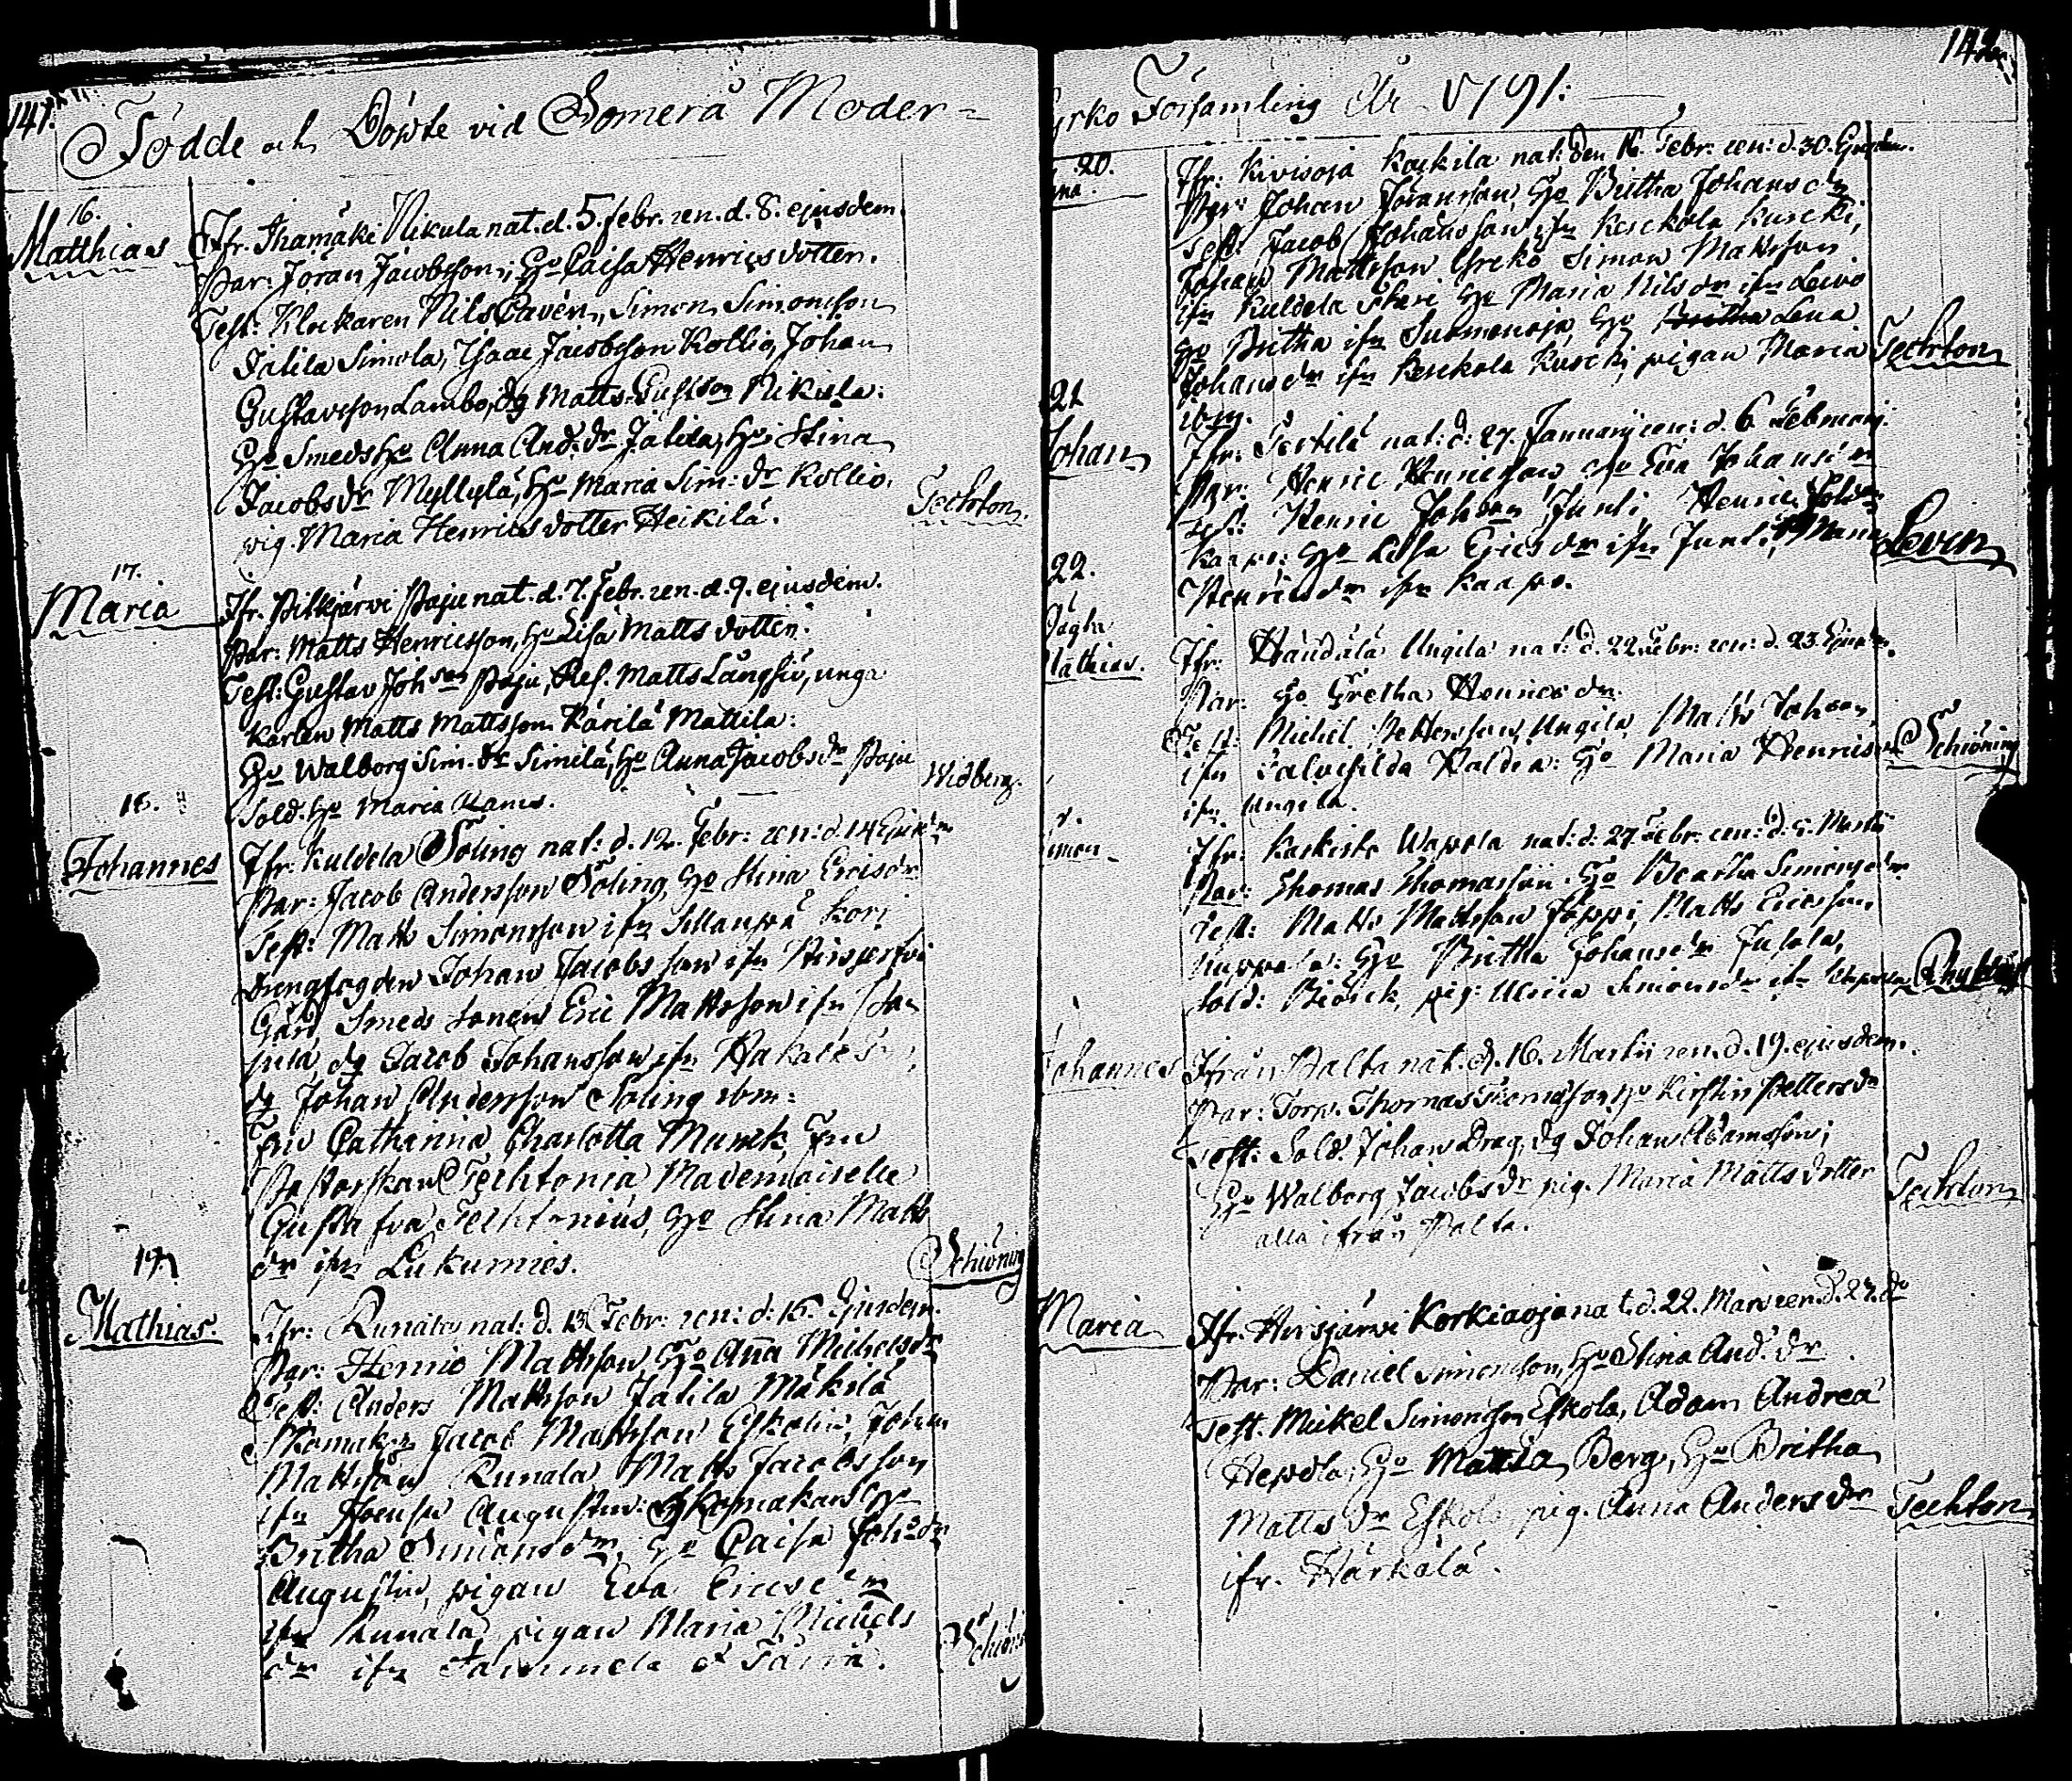 141.
Födde och Döpte vid Somero Moder=
16.
Matthias
Ifr. Ihamäki Nikula nat. d. 5. febr. ren. d. 8. ejusdem.
Par: Jöran Jacobsson, Ho Caisa Henricsdotter.
Test: Klockaren Nils Paven, Simon Simonsson
Jalila Simola, Isaac Jacobsson Kollio, Johan
Gustavsson Lambo, dg Matts Gustson Nikula:
Ho Smeds Ho Anna And. dr Jalila, Ho Stina
Jacobs dr Myllylä, Ho Maria Sim: dr Kollio.
pig. Maria Henricsdotter Heikilä.
Techton.
17.
Maria
Ifr. Pitkjärvi Paju nat. d. 7. Febr. ren. d. 9. ejusdem.
Par: Matts Henricsson, Ho Lisa Matts dotter.
Test: Gustav Johson Paju, Ref. Matts Långsiv, unga
karlen Matts Mattsson Kärilä Mattila:
Ho Walborg Sim. dr Similä, Ho Anna Jacobs dr Paju
Sold. Ho Maria Rams.
Widberg.
18.
Johannes
Ifr: Kuldela Söling nat: d. 12. Febr: ren: d. 14 Ejusdm
Par: Jacob Andersson Söling, Ho Stina Ericsdr
Test: Matts Simonsson ifr Sillanpä
drengfogden Johan Jacobsson ifr Hirsjerfvi
Gård Smeds sonen Eric Mattsson ifr
dg Jacob Johansson ifr
dg Johan Andersson Söling ibm:
Fru Catharina Charlotta Munck, Fru
Pastorskan Techtonia Mademoiselle
Gustava Techtonius, Ho Stina Matts
dr ifr Lukumies.
Schiöning
19.
Mathias.
Ifr: Runala nat: d. 13 Febr: ren: d: 15. Ejusdem.
Par: Henric Mattsson, Ho Anna Michelsdr
Test: Anders Mattsson Jalila Mäkilä
Skomak: Jacob Mattsson Eskolin, Johan
Mattsson Runala Matts Jacobsson
ifr Augustin: Skomakars Ho
Britha Simonsdr, Ho Caisa Johsdr
Augustin, pigan Eva Ericsdr
ifr Runala, pigan Maria Michels
dr ifr Tammela
Schiöning
142.
yrko Församling År 1791:
20.
nna.
Ifr: Kivisoja Kackila nat: den 16. Febr: ren: d. 30. Ejusdem.
Par: Johan Jöransson, Ho Britha Johansdr
Test: Jacob Johansson ifr Kerckola Kurcki,
Johan Mattsson Simon Mattsson
ifr Kuldela Ho Maria Nilsdr ifr
Ho Britha ifr Suomenoja, Ho Lena
Johansdr ifr Kerckola Kurcki, pigan Maria
ibm.
Techton
21
Johan
Ifr: Pertilä nat: d: 27. Januarij ren: d. 6 Februarij.
Par: Henric Henricsson Ho Eva Johansdr
Test: Henric Johson Junti Henric Johson
Kaapo: Ho Lisa Ericsdr ifr Junti, Maria
Henricsdr ifr Kaapo.
Leven
22.
Oägta
Mathias.
Ifr: Händälä Ungila nat: d. 22. Febr: ren: d. 23 Ejusdm.
Par: Ho Gretha Henricsdr.
Test: Michel Pettersson Ungila Matts Johson
ifr Ho Maria Henricsdr
ifr Ungila.
Schiöning
imon
Ifr: Kackisto Uapola nat: d: 27 Febr: ren: d: 5. Martii
Par: Thomas Thomasson. Ho Beatha Simonsdr
Test: Matts Mattsson Jåppi, Matts Ericsson
Ho Britha Johansdr
Sold: Biörck, pig: Ulrica Simonsdr ifr Uapola
ohannes
Ifrån Palta nat. d. 16. Martii ren. d. 19. ejusdem.
Par: Torp. Thomas Thomasson, Ho Kirstin Petters dr
Test: Sold. Johan Drag, dg Johan Adamsson;
Ho Walborg Jacobs dr pig. Maria Matts dotter
alla ifrån Palta.
Techton
Maria
Ifr. Hirsjärvi Korkiaoja nat. d. 22. Mars ren. d. 27. do
Par: Daniel Simonsson, Ho Stina And. dr
Test. Mickel Simonsson Eskola, Adam Andreæ
Hepola; Ho Maria Berg, Ho Britha
Matts dr Eskola pig. Anna Anders dr
ifr. Härkälä.
Techton